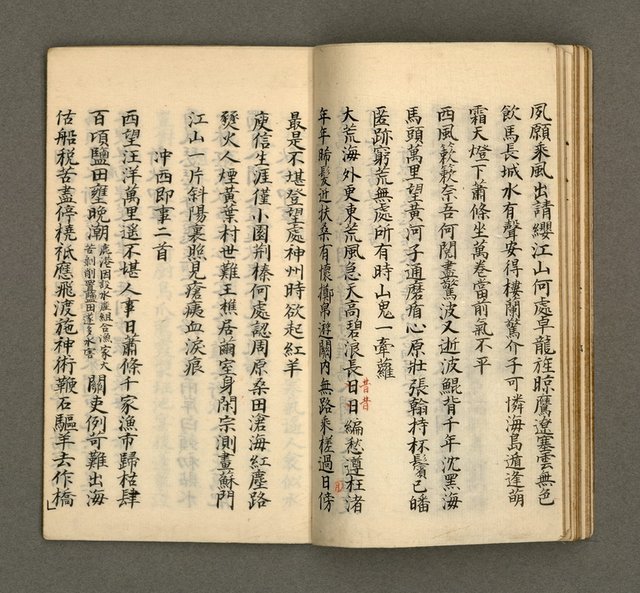 夙願乘風出請纓江山何處卓龍旌晾鷹遼塞雲無色
飲馬長城水有聲安得樓蘭驚介子可憐海島遁逢萌
霜天燈下蕭條坐萬卷當前氣不平
西風簌簌奈吾何閱盡驚波又逝波鯤背千年沈黑海
馬頭萬里望黃河子通磨盾心原壯張翰持杯鬢已皤
匿跡窮荒無處所有時山鬼一牽蘿
大荒海外更東荒風急天高碧浪長日日編愁遵枉渚
昔昔
年年晞髮近扶桑有懷擲帛遊關內無路乘槎過日傍
最是不堪登望處神州時欲起紅羊
庾信生涯僅小園荊榛何處認周原桑田滄海紅塵路
發火人煙黃葉村世難王樵居繭室身閑宗測畫蘇門
江山一片斜陽裏照見瘡痍血淚痕
冲西即事二首
西望汪洋萬里遙不堪人事日蕭條千家漁市歸枯肆
百頃鹽田壅晚潮鹿港因設水產組合漁家大苦剝削置鹽田遂多水害關吏例苛難出海
估船稅苦盡停橈祇應飛渡施神術鞭石驅羊去作橋